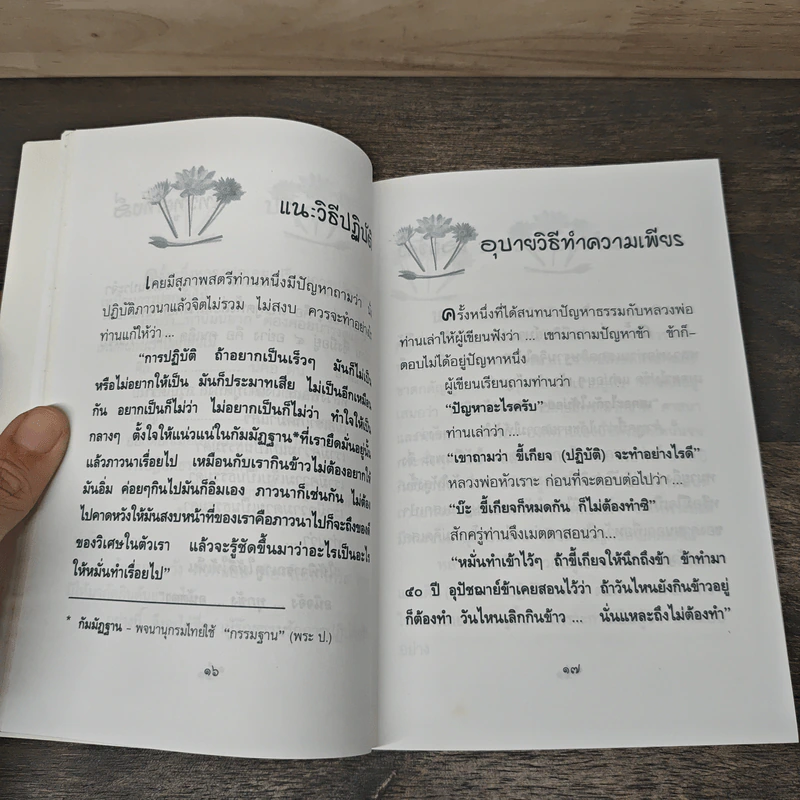 แนะวิธีปฏิบัติ
เคยมีสุภาพสตรีท่านหนึ่งมีปัญหาถามว่า
ปฏิบัติภาวนาแล้วจิตไม่รวม ไม่สงบ ควรจะทำอย่างไร
ท่านแก้ให้ว่า ...
“การปฏิบัติ ถ้าอยากเป็นเร็วๆ มันก็ไม่เป็น
หรือไม่อยากให้เป็น มันก็ประมาทเสีย ไม่เป็นอีกเหมือน
กัน อยากเป็นก็ไม่ว่า ไม่อยากเป็นก็ไม่ว่า ทำใจให้เป็น
กลางๆ ตั้งใจให้แน่วแน่ในกัมมัฏฐาน*ที่เรายึดมั่นอยู่นั้น
แล้วภาวนาเรื่อยไป เหมือนกับเรากินข้าวไม่ต้องอยากให้
มันอิ่ม ค่อยๆกินไปมันก็อิ่มเอง ภาวนาก็เช่นกัน ไม่ต้อง
ไปคาดหวังให้มันสงบหน้าที่ของเราคือภาวนาไปก็จะถึงของดี
ของวิเศษในตัวเรา แล้วจะรู้ชัดขึ้นมาว่าอะไรเป็นอะไร
ให้หมั่นทำเรื่อยไป”
* กัมมัฏฐาน - พจนานุกรมไทยใช้ “กรรมฐาน” (พระ ป.)
๑๖
อุบายวิธีทำความเพียร
ครั้งหนึ่งที่ได้สนทนาปัญหาธรรมกับหลวงพ่อ
ท่านเล่าให้ผู้เขียนฟังว่า ... เขามาถามปัญหาข้า ข้าก็-
ตอบไม่ได้อยู่ปัญหาหนึ่ง
ผู้เขียนเรียนถามท่านว่า
“ปัญหาอะไรครับ”
ท่านเล่าว่า ...
“เขาถามว่า ขี้เกียจ (ปฏิบัติ) จะทำอย่างไรดี”
หลวงพ่อหัวเราะ ก่อนที่จะตอบต่อไปว่า ...
“บ๊ะ ขี้เกียจก็หมดกัน ก็ไม่ต้องทำซิ”
สักครู่ท่านจึงเมตตาสอนว่า...
“หมั่นทำเข้าไว้ๆ ถ้าขี้เกียจให้นึกถึงข้า ข้าทำมา
๕๐ ปี อุปัชฌาย์ข้าเคยสอนไว้ว่า ถ้าวันไหนยังกินข้าวอยู่
ก็ต้องทำ วันไหนเลิกกินข้าว ... นั่นแหละถึงไม่ต้องทำ”
๑๗